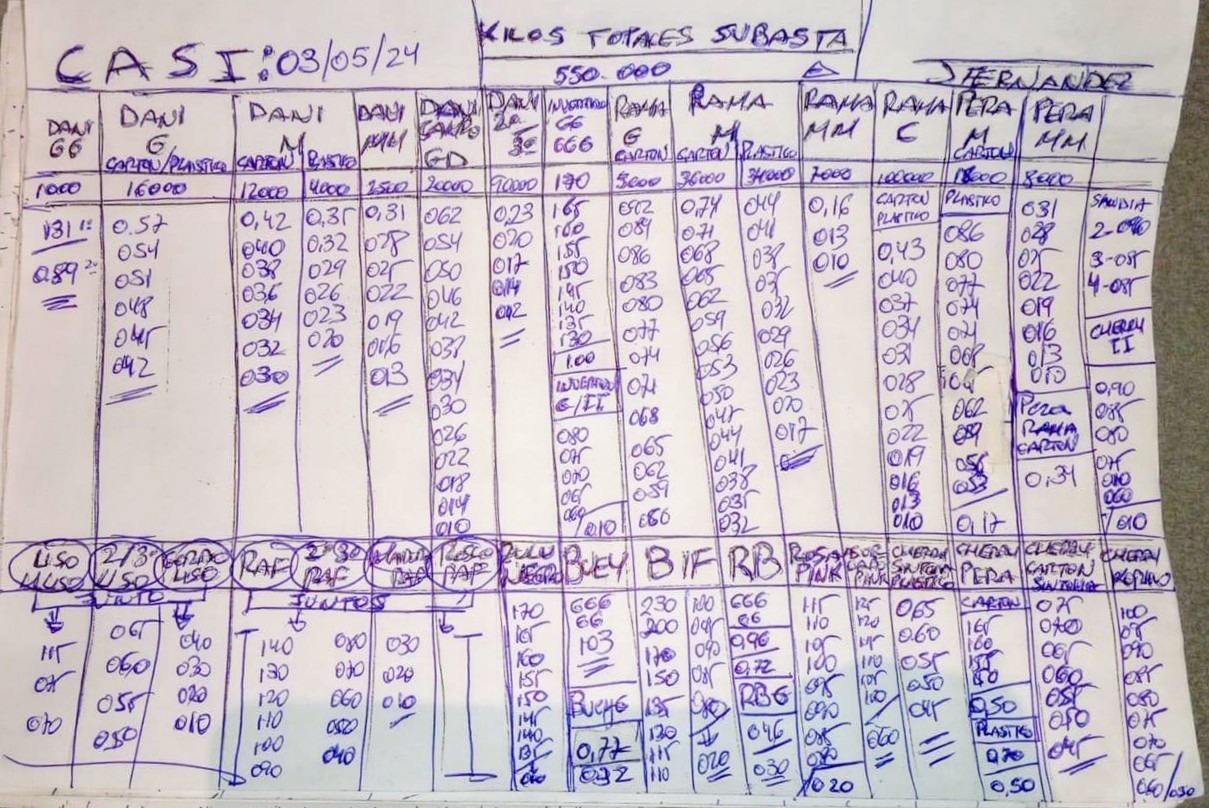 CASI: 03/05/24
KILOS TOTALES SUBASTA
550.000
J HERNANDEZ
DANI GG
DANI G CARTON/PLASTICO
DANI M CARTON PLASTICO
DANI MM
GD
INVERTIDO GG 666
RAMA G CARTON
RAMA M CARTON PLASTICO
RAMA MM
RAMA C
PERA M CARTON
PERA MM
1000 16000 12000 4000 2500 20000 90000 170 5000 36000 34000 7000 100000 8000
131 1ª
0,89 2ª
0.57
054
051
048
045
042
0,42
040
038
036
034
032
030
0,35
0,32
029
026
023
020
0,31
028
025
022
019
016
013
062
054
050
046
042
038
034
030
026
022
018
014
010
0,23
020
017
014
012
165
160
155
150
145
140
135
130
1.00
INVERTIDO G/II
080
075
070
065
060/010
092
089
086
083
080
077
074
071
068
065
062
059
0,74
071
068
065
062
059
056
053
050
047
044
041
038
035
032
044
041
038
035
032
029
026
023
020
017
0,16
013
010
CARTON PLASTICO
0,43
040
037
034
031
028
025
022
019
016
013
010
PLASTICO
086
080
077
074
071
068
065
062
056
053
0,17
031
028
025
022
019
016
013
010
PERA RAMA CARTON
0,34
SANDIA
2-090
3-085
4-085
CHERRY II
0,90
085
080
075
070
060
/010
LISO
2/3ª LISO
LISO
JUNTO
115
075
070
065
060
055
050
040
030
020
010
RAF
2ª 3ª RAF
RAF
RAF
JUNTOS
140
130
120
110
100
090
080
070
060
050
040
030
020
010
170
165
160
155
150
145
140
135
BUEY
666
66
103
BUEY G
0,77
0,32
B IF
230
200
170
150
135
120
115
110
100
095
090
085
080
II
020
RB
666
66
0,96
0,72
RBG
046
030
ROSA PINK
115
110
105
100
095
090
085
080
/020
PINK
125
120
115
110
105
100
060
CHERRY SINTONIA PLASTICO
065
060
055
050
045
CHERRY PERA
CARTON
165
160
155
150
0,50
PLASTICO
0,70
0,50
CHERRY CARTON SINTONIA
075
070
065
060
055
050
045
CHERRY
100
095
090
085
080
075
070
065
060/030